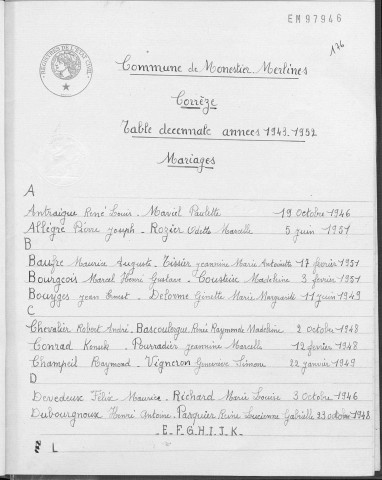 EM97946
176
REGISTRES DE L'ETAT CIVIL
Commune de Monestier-Merlines
Corrèze
Table décennale années 1943-1952
Mariages
A
Antraigue René Louis - Maviel Paulette 19 octobre 1946
Allègre Pierre Joseph - Rozier Odette Marcelle 5 juin 1951
B
Baufre Maurice Auguste - Tissier Jeannine Marie Antoinette 17 février 1951
Bourgeois Marcel Henri Gustave - Cousteix Madeleine 3 février 1951
Bouyges Jean Ernest - Delorme Ginette Marie Marguerite 11 juin 1949
C
Chevalier Robert André - Bascoulogue Renée Raymonde Madeleine 2 octobre 1948
Conrad - Pourradier Jeannine Marcelle 12 février 1948
Champeil Raymond - Vigneron Geneviève Simone 22 janvier 1949
D
Devedeux Félix Maurice - Richard Marie Louise 3 octobre 1946
Dubourgnoux Henri Antoine - Pasquier Reine Lucienne Gabrielle 23 octobre 1948
- E. F. G. H. I. J. K. -
L